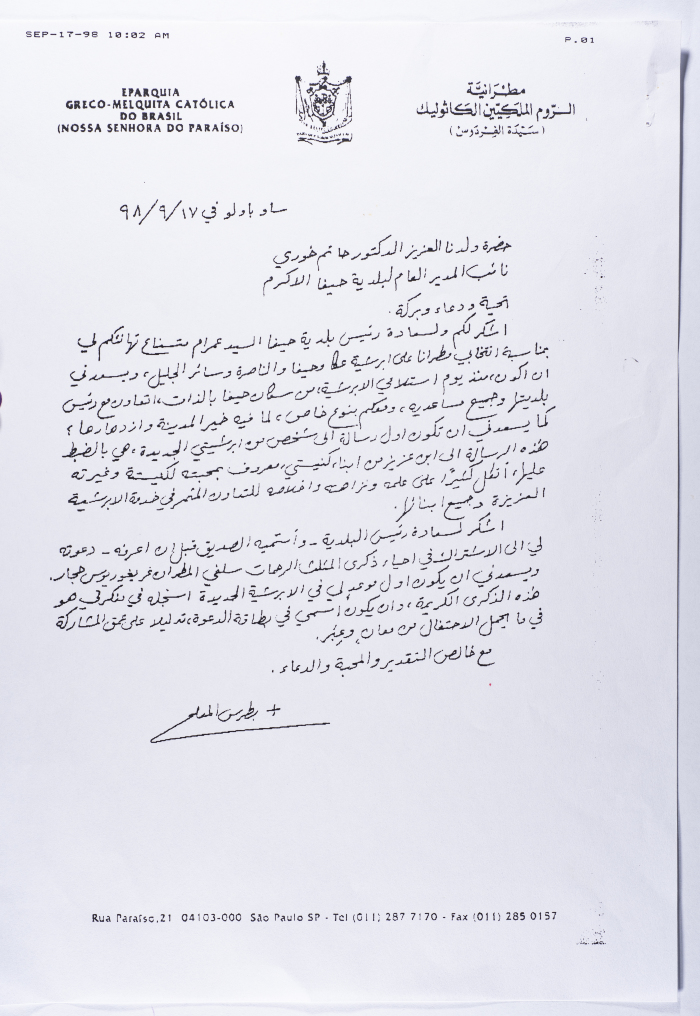 SEP-17-98 10:02 AM
P.01
EPARQUIA
GRECO-MELQUITA CATÓLICA
DO BRASIL
(NOSSA SENHORA DO PARAÍSO)
مطرانيّة
الروم الملكيّين الكاثوليك
(سيّدة الفردوس)
ساو باولو في ٩٨/٩/١٧
حضرة ولدنا العزيز الدكتور حاتم خوري
نائب المدير العام لبلدية حيفا الاكرم
تحية ودعاء وبركة.
اشكر لكم ولسعادة رئيس بلدية حيفا السيد عمرام متسناع تهانئكم لي
بمناسبة انتخابي مطرانا على ابرشية عكا وحيفا والناصرة وسائر الجليل، ويسعدني
ان اكون، منذ يوم استلامي الابرشية، من سكان حيفا بالذات، اتعاون مع رئيس
بلديتها وجميع مساعديه، ومعكم بنوع خاص، لما فيه خير المدينة وازدهارها؛
كما يسعدني ان تكون اول رسالة الى شخص من ابرشيتي الجديدة، هي بالضبط
هذه الرسالة الى ابن عزيز من ابناء كنيستي، معروف بمحبته للكنيسة وغيرته
عليها، أتكل كثيرًا على علمه ونزاهته واخلاصه للتعاون المثمر في خدمة الابرشية
العزيزة وجميع ابنائها.
اشكر لسعادة رئيس البلدية - وأسميه الصديق قبل ان اعرفه - دعوته
لي الى الاشتراك في احياء ذكرى المثلث الرحمات سلفي المطران غريغوريوس حجار.
ويسعدني ان يكون اول موعد لي في الابرشية الجديدة اسجله في مفكرتي هو
هذه الذكرى الكريمة، وان يكون اسمي في بطاقة الدعوة، تدليلا على عمق المشاركة
في ما يحمل الاحتفال من معانٍ وعِبَر.
مع خالص التقدير والمحبة والدعاء.
+ بطرس المعلم
Rua Paraíso,21 04103-000 São Paulo SP - Tel (011) 287 7170 - Fax (011) 285 0157